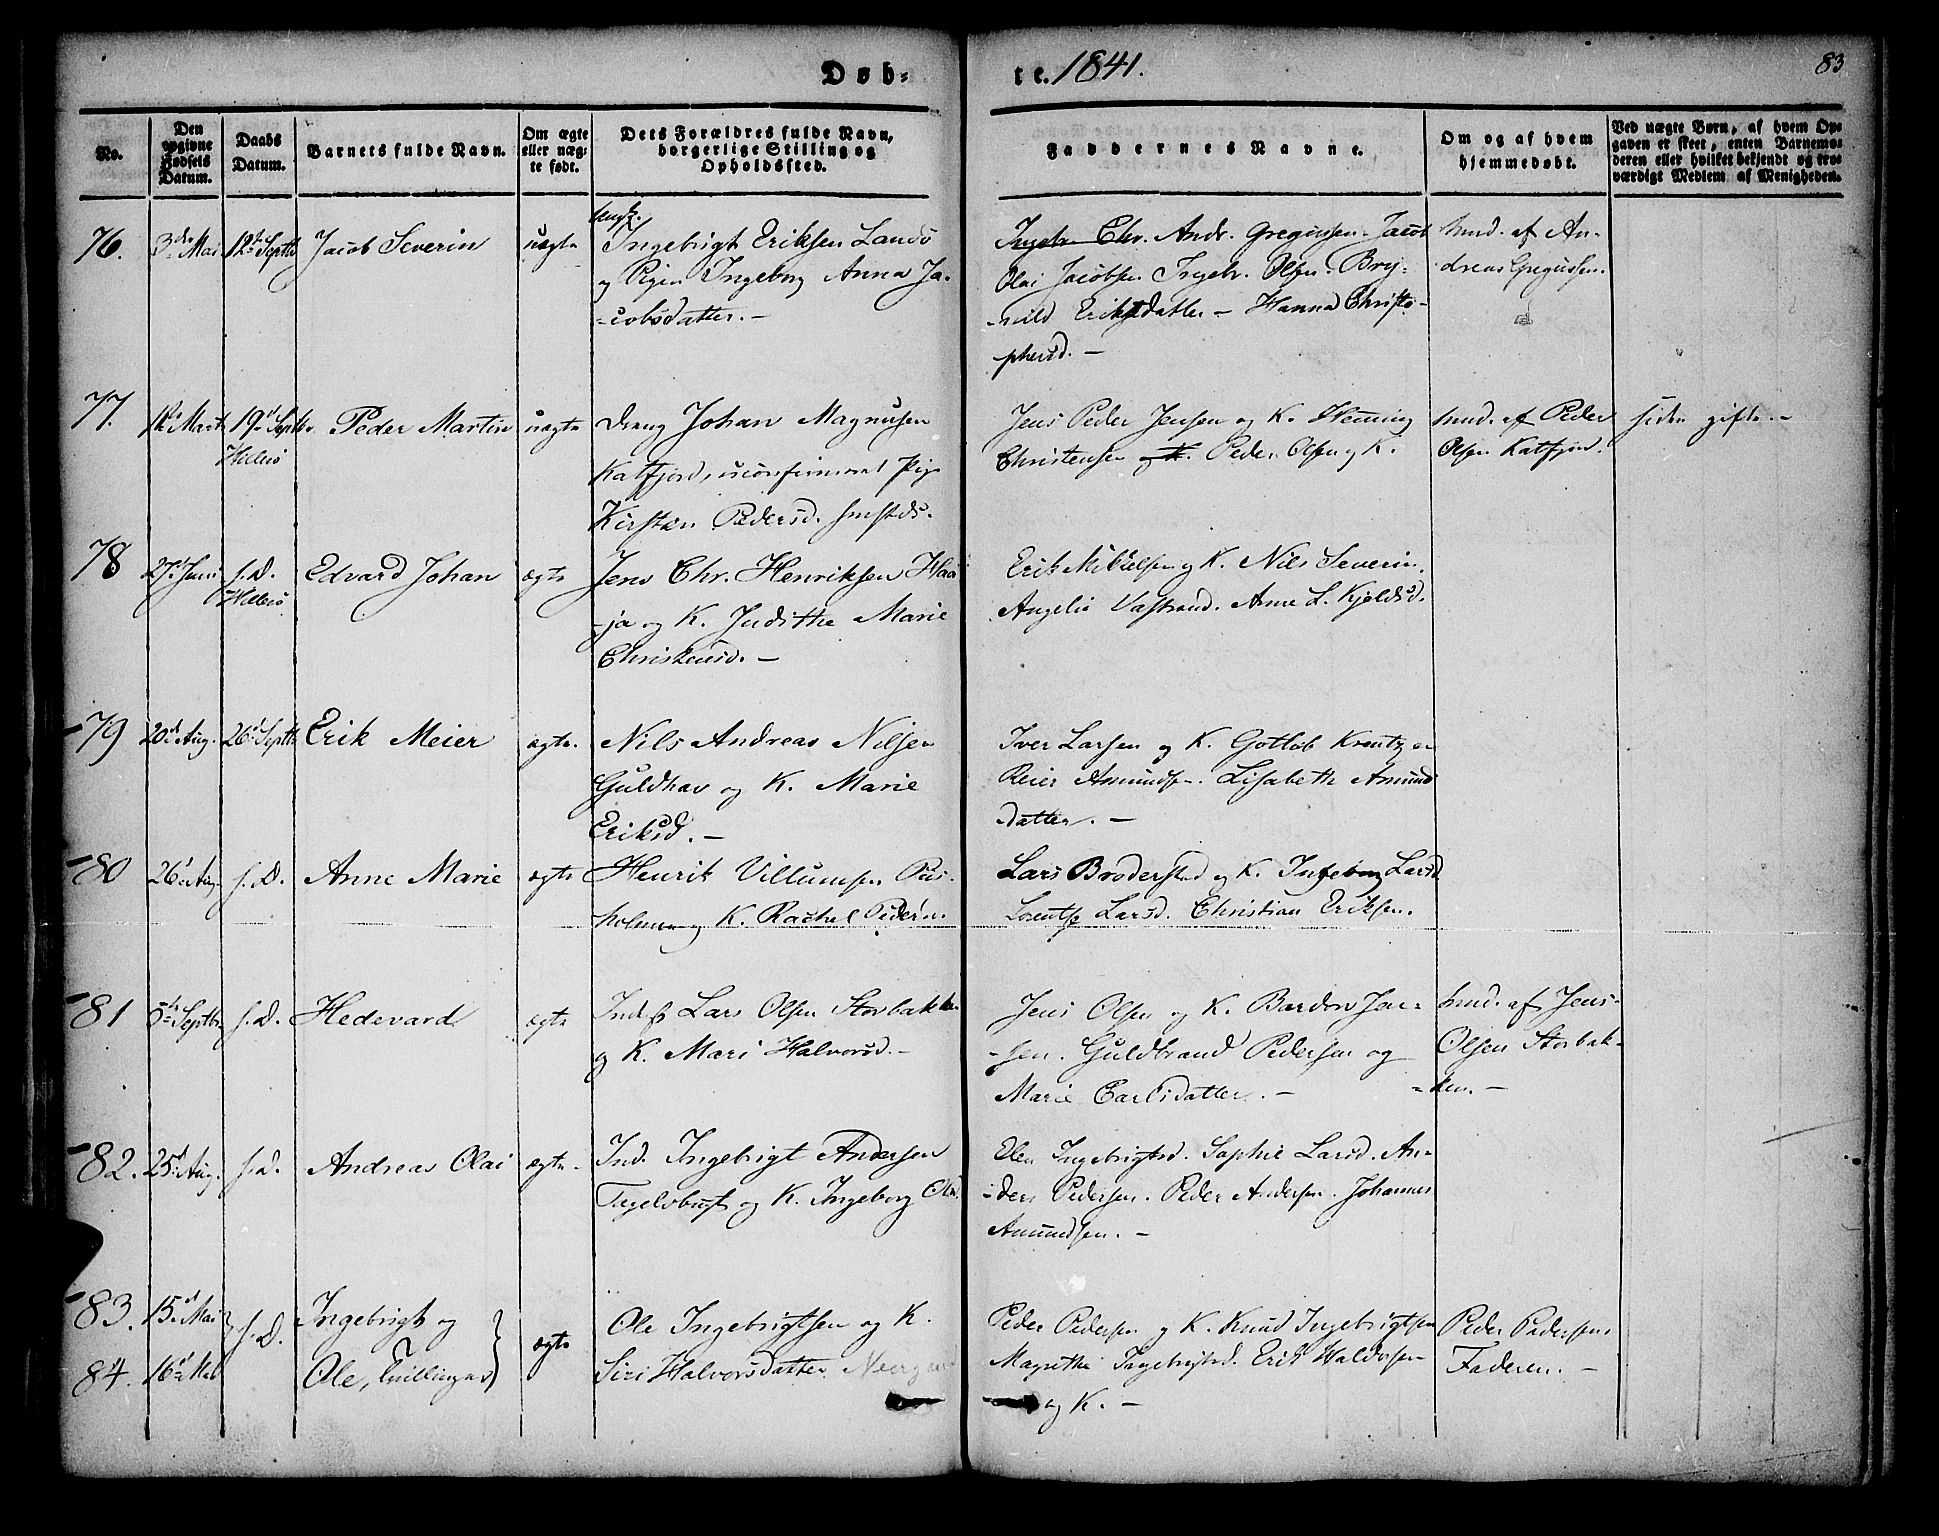 Døb-
te. 1841.
83
No.
Den opgivne Fødsels Datum.
Daabs Datum.
Barnets fulde Navn.
Om ægte eller uæg- te født.
Dets Forældres fulde Navn, borgerlige Stilling og Opholdssted.
Faddernes Navne.
Om og af hvem hjemmedøbt.
Ved uægte Børn, af hvem Op- gaven er skeet, enten Barnemo- deren eller hvilket bekjendt og tro- værdigt Medlem af Menigheden.
76.
3die Mai
12te Septbr
Jacob Severin
uægte
Ungk.
Ingebrigt Eriksen Landø
og Pigen Ingeborg Anna Ja-
-cobsdatter. -
Ingebr. Chr. Andr. Gregussen. Jacob
Olai Jacobsen Ingebr. Olsen. Bry-
-nild Eriksdatter - Hanna Christo-
phersd. -
hmd. af An-
dreas Gregussen.
77.
Mart
19d Septbr
Hillesø
Peder Martin
uægte
Dreng Johan Magnusen
Katfjord, uconfirmeret Pige
Kirsten Pedersd. smsteds.
Jens Peder Jensen og K. Henning
Christensen og K. Peder Olsen og K.
hmd. af Peder
Olsen Katfjord.
siden gifte. -
78
27d Juni
s. D.
Hillesø
Edvard Johan
ægte
Jens Chr. Henriksen Haa
-ja og K. Judithe Marie
Christensd. -
Erik Mikkelsen og K. Nils Severin.
Angelic Vastrand. Anne L. Kjeldsd.
79
20d Aug.
26d Septbr
Erik Meier
ægte.
Nils Andreas Nilsen
Guldhav og K. Marie
Eriksd. -
Iver Larsen og K. Gotlob Kreutzer
Reier Amundsen. Lisabeth Amund
-datter. -
80
26d Aug.
s. D.
Anne Marie
ægte
Henrik Villumsen
holmen og K. Rachel Peders.
Lars Brodersted og K. Ingeborg Larsd
Lorentse Larsd. Christian Eriksen.
81
5te Septbr
s. D.
Hedevard
ægte
Inders Lars Olsen Storbakken
og K. Mari Halvorsd. -
Jens Olsen og K. Bardon Jen-
-sen. Guldbrand Pedersen og
Marie Carlsdatter. -
hmd. af Jens
Olsen Storbak-
-ken. -
82.
25d Aug.
s. D.
Andreas Olai
ægte
Ind. Ingebrigt Andersen
Tagelvbugt og K. Ingeborg Ols.
Elen Ingebrigtsd. Sophie Larsd. An-
-ders Pedersen. Peder Andersen. Johannes
Amundsen. -
83.
15d Mai
84.
16d Mai
s. D.
Ingebrigt og
Ole, Tvillinger
ægte
Ole Ingebrigtsen og K.
Siri Halvorsdatter
Peder Pedersen og K. Knud Ingebrigtsen
Magrethe Ingebrigtsd. Erik Haldorsen
og K. -
Peder Pedersen.
Faderen. -